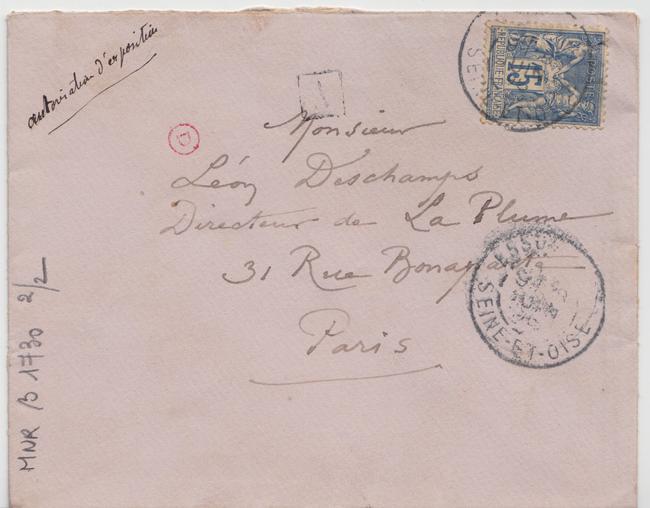 autorisation d'exposition
15
REPUBLIQUE FRANÇAISE
POSTES
SEI
D
Monsieur
Léon Deschamps
Directeur de La Plume
31 Rue Bonaparte
Paris
SEINE-ET-OISE
MNR B 1730 2/2